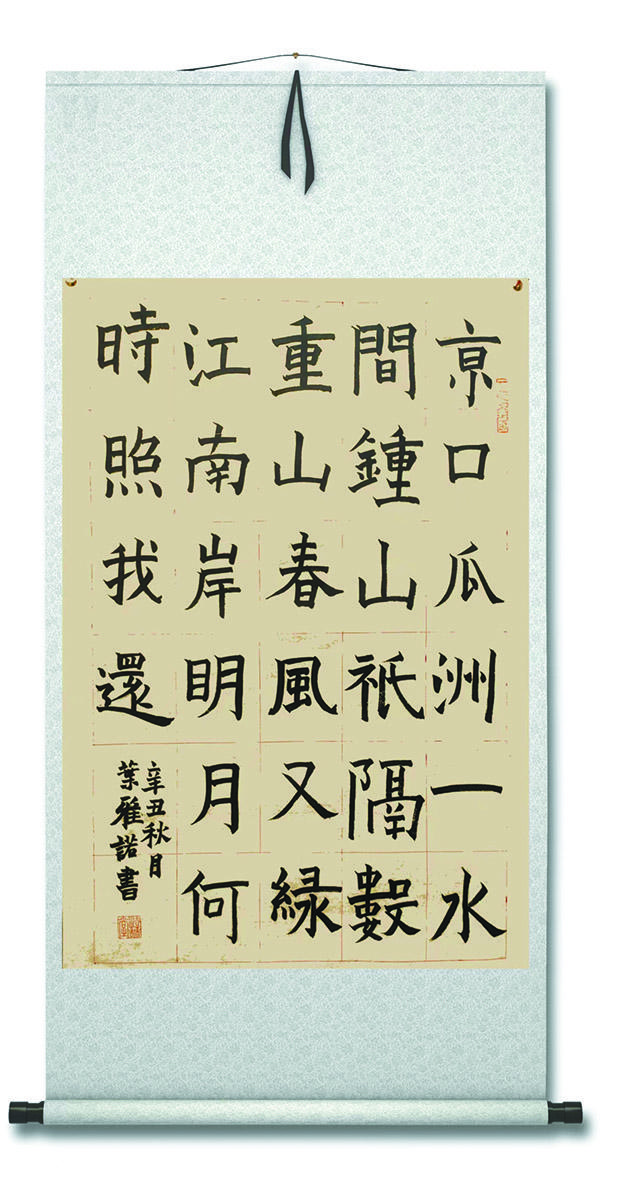 京口瓜洲一水
間鍾山祇隔數
重山春風又緑
江南岸明月何
時照我還
辛丑秋月
葉雅諾書